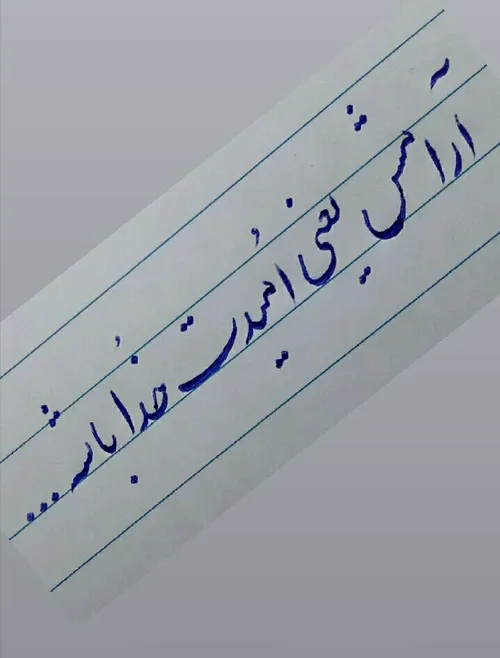 آرامش یعنی اُمیدت خُدا باشد...